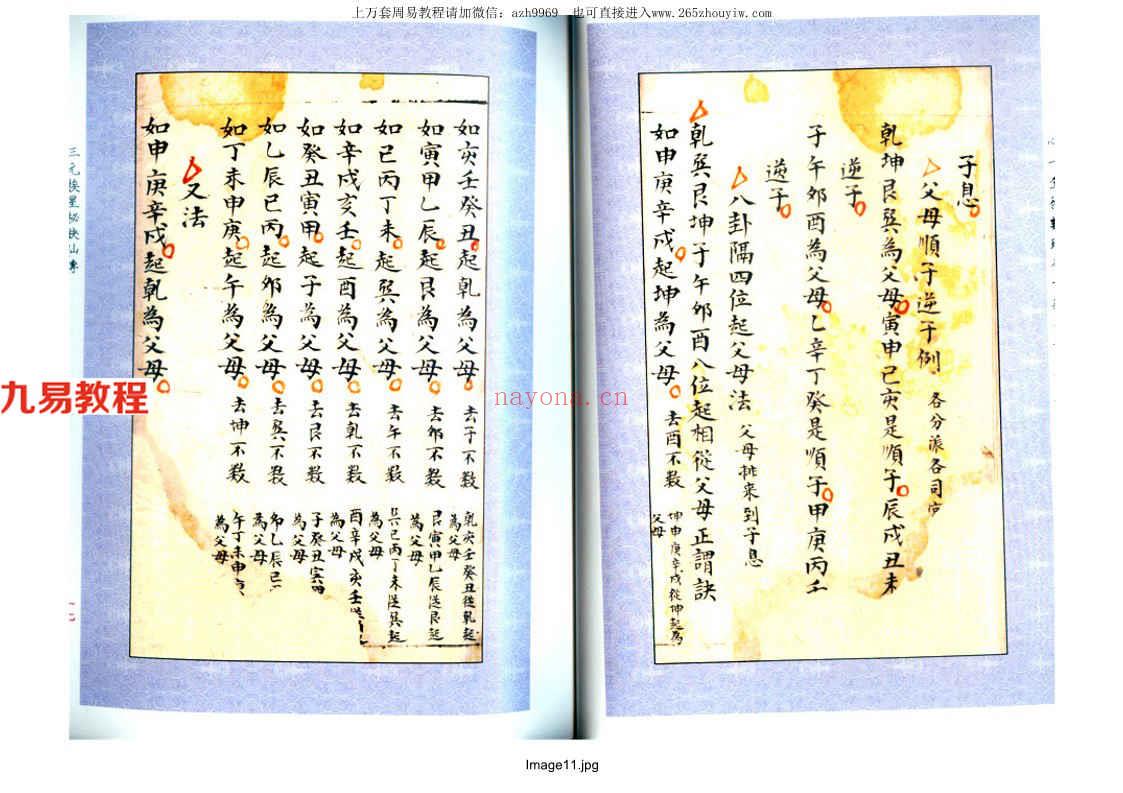 上万套周易教程请加微信：azh9969 也可直接进入www.265zhouyiw.com
子息
父母順子逆子例 各分派各司
乾坤艮巽為父母寅申巳亥是順子辰戌丑未
逆子
子午卯酉為父母乙辛丁癸是順子甲庚丙壬
逆子
八卦隔四位起父母法 父母挑来到子息
乾巽艮坤子午卯酉八位起相從父母正謂訣
如申庚辛戌起坤為父母 去酉不数 坤申庚辛戌從坤起為
父母
如亥壬癸丑起乾為父母 去子不数 乾亥壬癸丑從乾起
為父母
如寅甲乙辰起艮為父母 去卯不数 艮寅甲乙辰從艮起
為父母
如巳丙丁未起巽為父母 去午不数 巽巳丙丁未從巽起
為父母
如辛戌亥壬起酉為父母 去乾不数 酉辛戌亥壬從
為父母
如癸丑寅甲起子為父母 去艮不数 子癸丑寅
為父母
如乙辰巳丙起卯為父母 去巽不数 卯乙辰巳
為父母
如丁未申庚起午為父母 去坤不数 午丁未申
為父母
又法
如申庚辛戌起乾為父母
三元挨星秘訣仙傳
九易教程
nayona.cn
Image11.jpg